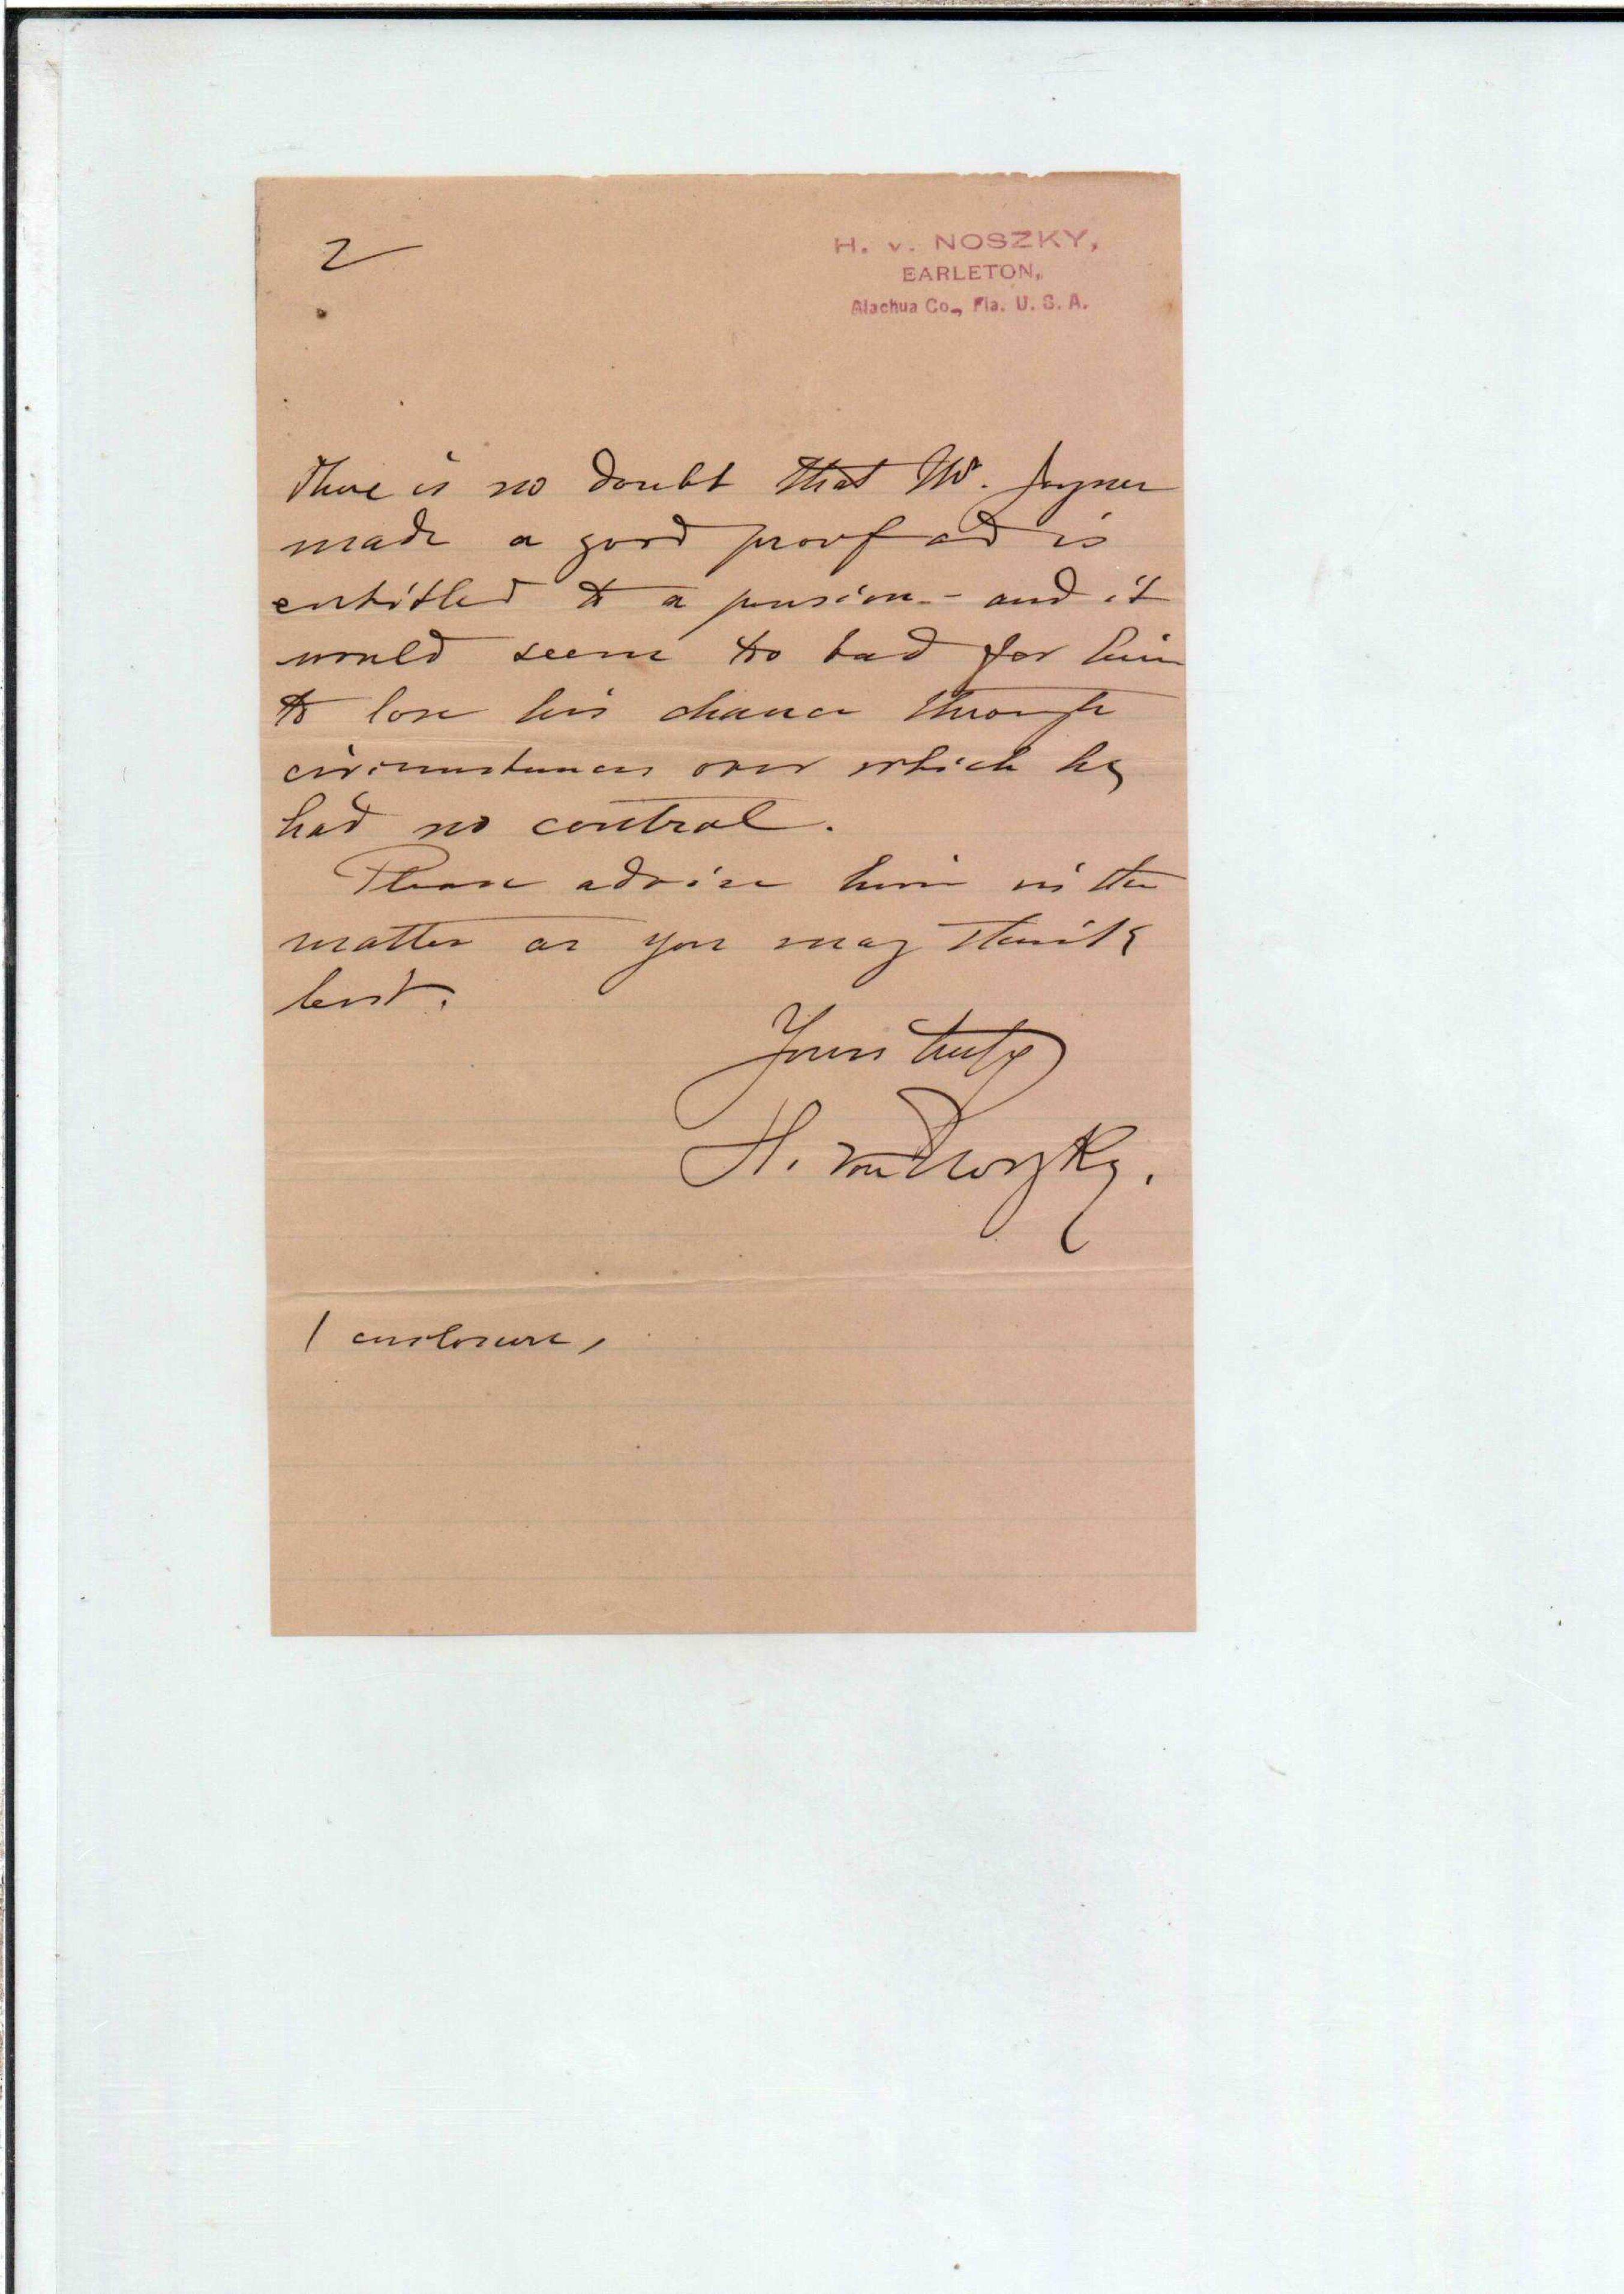 2
H. v. NOSZKY,
EARLETON,
Alachua Co., Fla. U. S. A.
There is no doubt that Mr. Joyner
made a good proof ad is
entitled to a pension - and it
would seem to bad for him
to lose his chance through
circumstances over which he
had no control.
Please advise him in the
matter as you may think
best.
Yours truly
H. von Noszky.
1 enclosure,